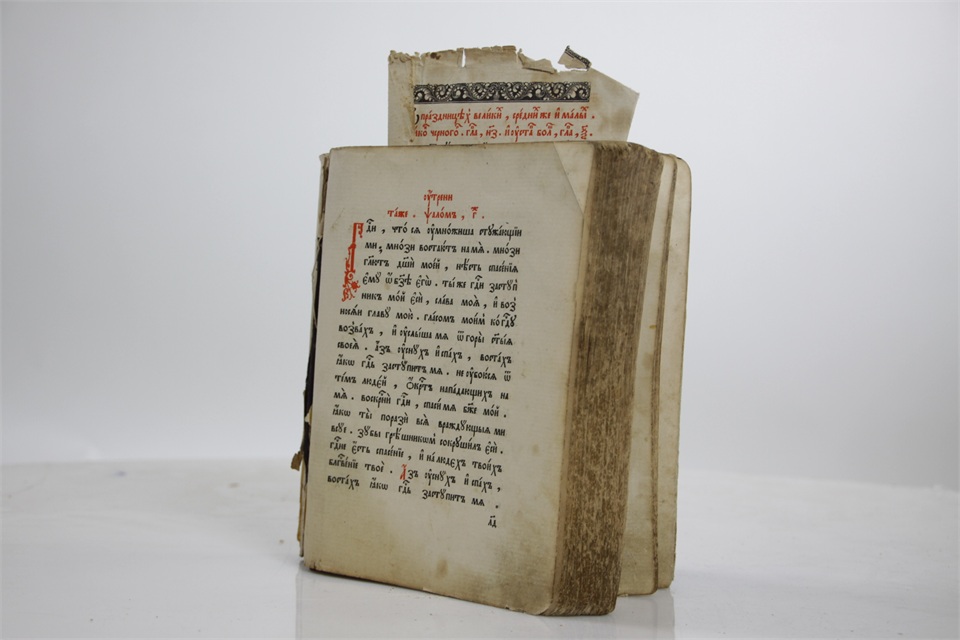 праздницѣхъ вели́кихъ, сре́днихъ же и҆ ма́лыхъ.
гла, и҆з. и҆ оу҆ста бол, гла,
оу҆́трени
та́же. ѱало́мъ, г҃.
Гдⷭ҇и, что́ сѧ оу҆мно́жиша стꙋжа́ющїи
ми, мно́зи востаю́тъ на мѧ̀. мно́зи
гл҃ютъ дꙋшѝ мое́й, нѣ́сть спасе́нїѧ
є҆мꙋ̀ ѡ҆ бз҃ѣ є҆гѡ̀. ты́ же гдⷭ҇и застꙋ́п
никъ мо́й є҆сѝ, сла́ва моѧ̀, и҆ воз
носѧ́й главꙋ̀ мою̀. гла́сомъ мои́мъ ко гдⷭ҇ꙋ
возва́хъ, и҆ оу҆слы́ша мѧ ѿ горы̀ ст҃ы́ѧ
своеѧ̀. а҆́зъ оу҆снꙋ́хъ и҆ спа́хъ, воста́хъ
ꙗ҆́кѡ гдⷭ҇ь застꙋ́питъ мѧ. не оу҆бою́сѧ ѿ
те́мъ люде́й, ѻ҆́крⷭ҇тъ напа́дающихъ на
мѧ̀. воскрⷭ҇нѝ гдⷭ҇и, спаси́ мѧ бж҃е мо́й.
ꙗ҆́кѡ ты̀ поразѝ всѧ̀ вражд́ꙋющыѧ ми
всꙋ́е. зꙋ́бы грѣ́шникомъ сокрꙋши́лъ є҆сѝ.
гдⷭ҇не є҆́сть спасе́нїе, и҆ на лю́дехъ твои́хъ
блгⷭ҇ве́нїе твоѐ. А҆́зъ оу҆снꙋ́хъ и҆ спа́хъ,
воста́хъ ꙗ҆́кѡ гдⷭ҇ь застꙋ́питъ мѧ.